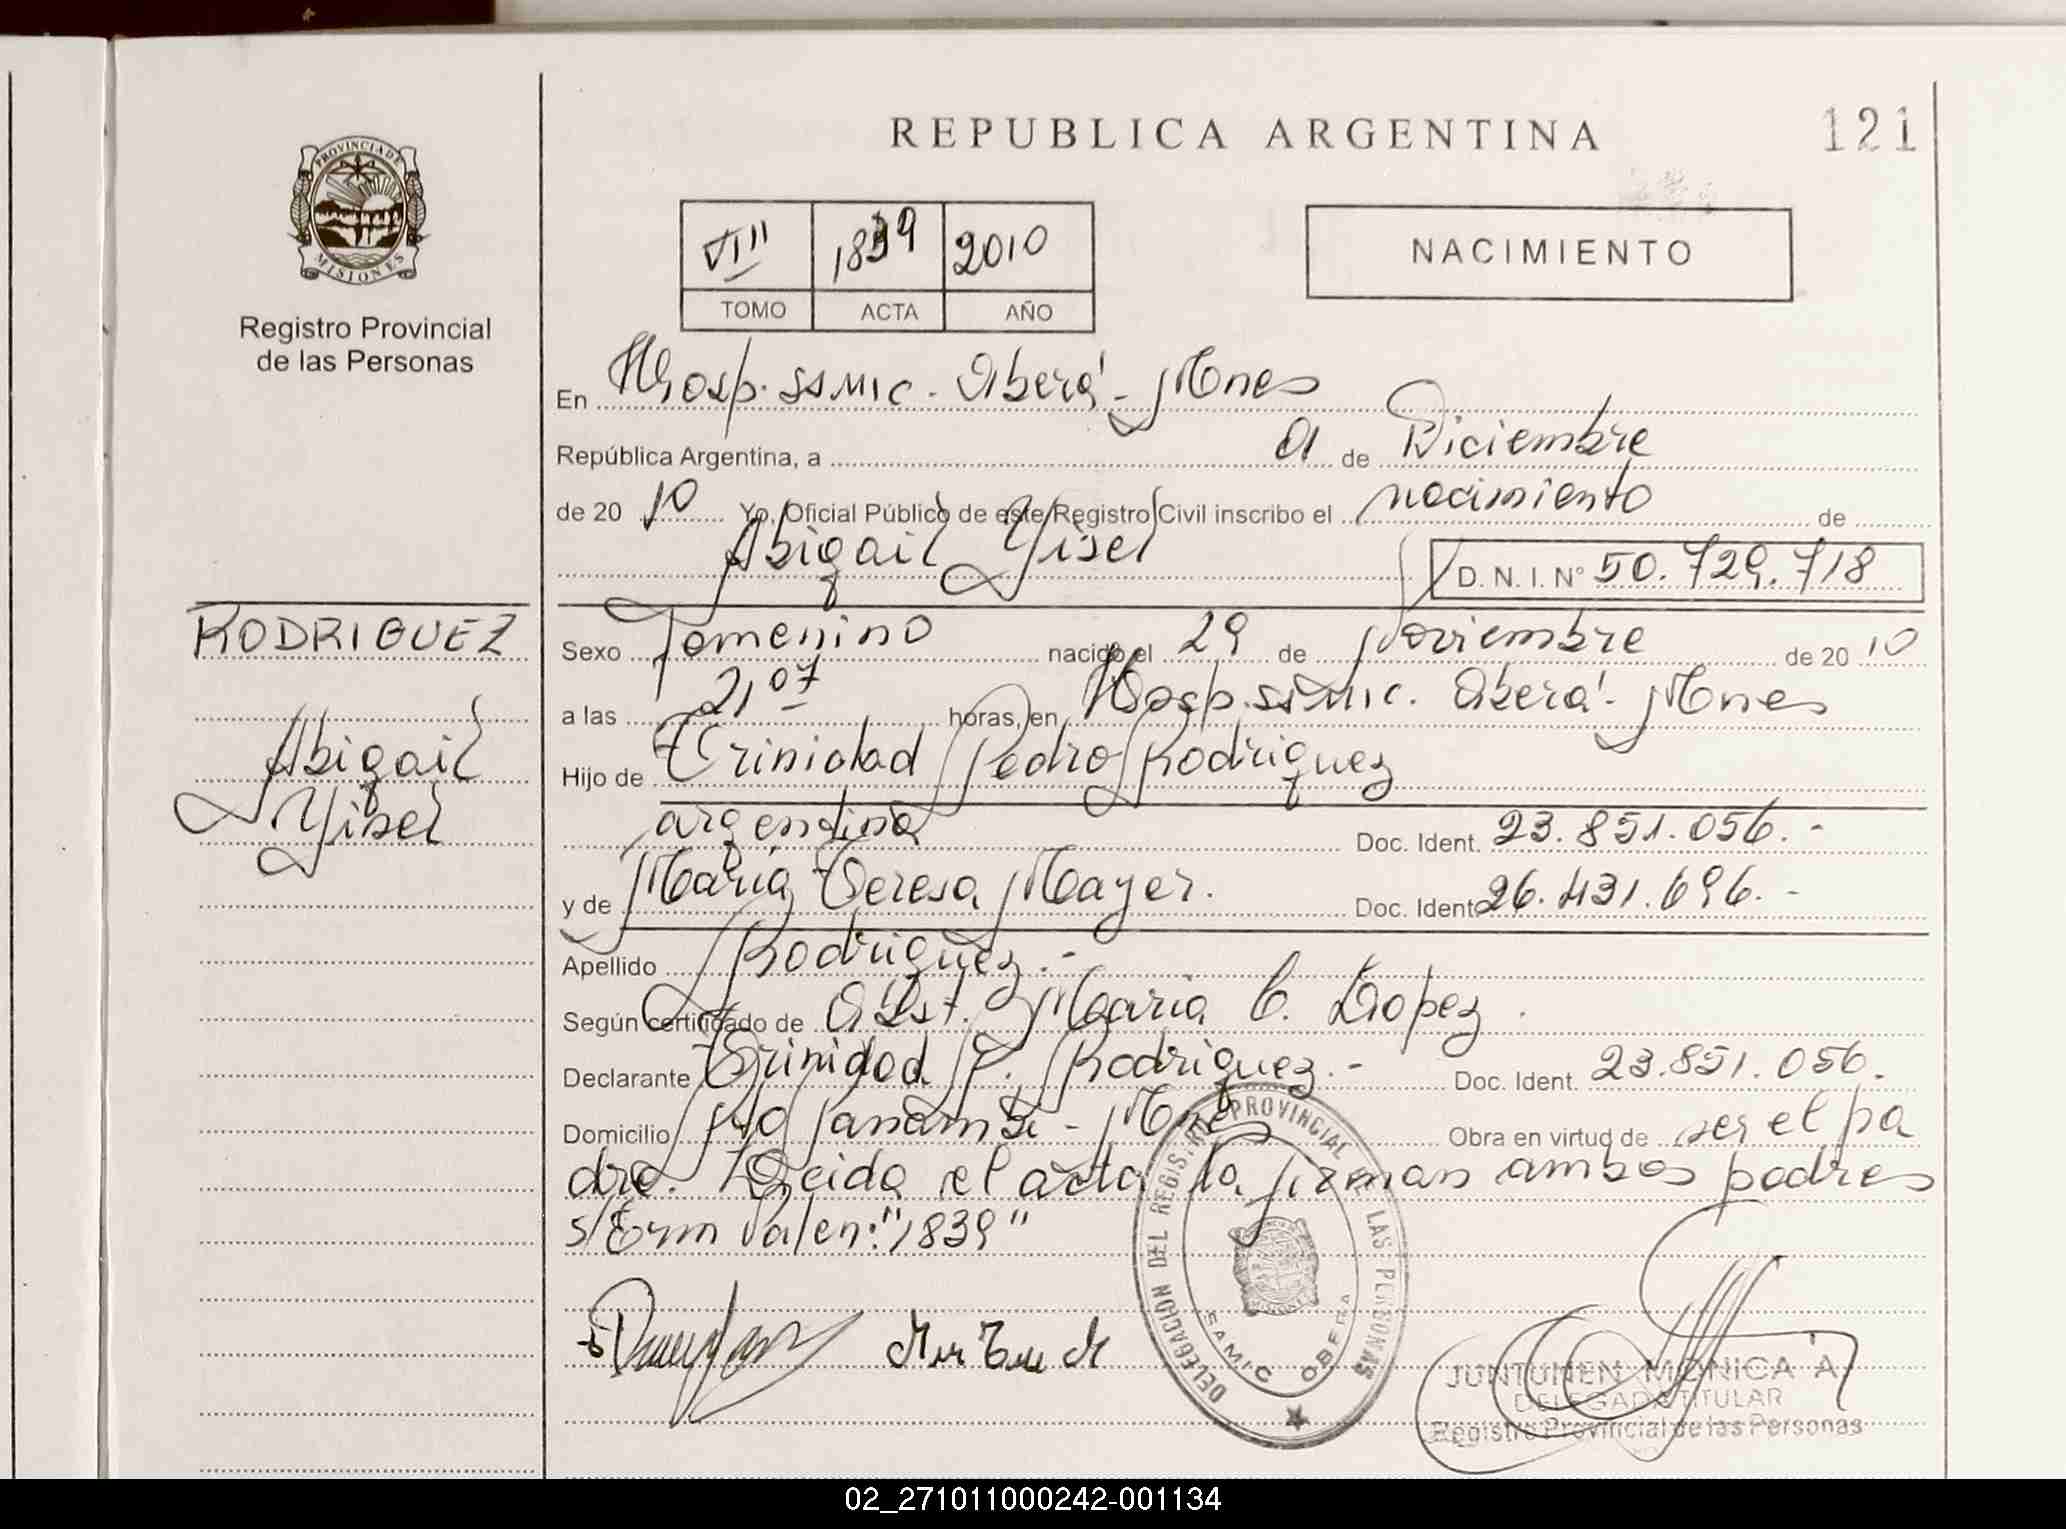 REPUBLICA ARGENTINA
121
PROVINCIA DE
MISIONES
Registro Provincial
de las Personas
VIII 1839 2010
TOMO ACTA AÑO
NACIMIENTO
En Hosp. SAMIC. Oberá - Mnes
República Argentina, a 01 de Diciembre
de 20 10 Yo, Oficial Público de este Registro Civil inscribo el nacimiento de
Abigail Yisel
D. N. I. N° 50.729.718
RODRIGUEZ
Abigail
Yisel
Sexo Femenino nacido el 29 de Noviembre de 20 10
a las 21,07 horas, en Hosp. SAMIC. Oberá - Mnes
Hijo de Trinidad Pedro Rodriguez
argentina Doc. Ident. 23.851.056.-
y de Maria Teresa Mayer. Doc. Ident. 26.431.696.-
Apellido Rodriguez.-
Según certificado de Obst. Maria C. Lopez.
Declarante Trinidad P. Rodriguez.- Doc. Ident. 23.851.056.
Domicilio Panambi - Mnes Obra en virtud de ser el pa
dre. Leida el acta la firman ambos padres
s/Enm Valen: "1839"
DELEGACION DEL REGISTRO PROVINCIAL DE LAS PERSONAS
SAMIC OBERA
JUNTUNEN MONICA A.
DELEGADA TITULAR
Registro Provincial de las Personas
02_271011000242-001134